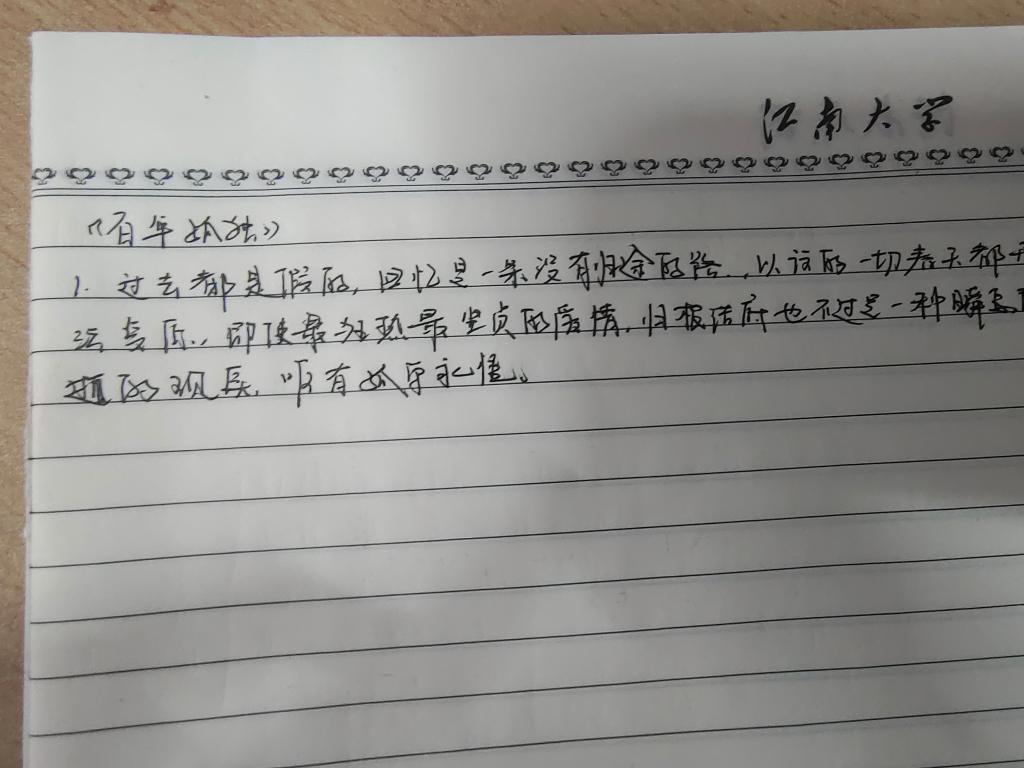 江南大学
《百年孤独》
1. 过去都是假的，回忆是一条没有归途的路，以往的一切春天都无
法复原，即使最狂热最坚贞的爱情，归根结底也不过是一种瞬息
的现实，唯有孤独永恒。